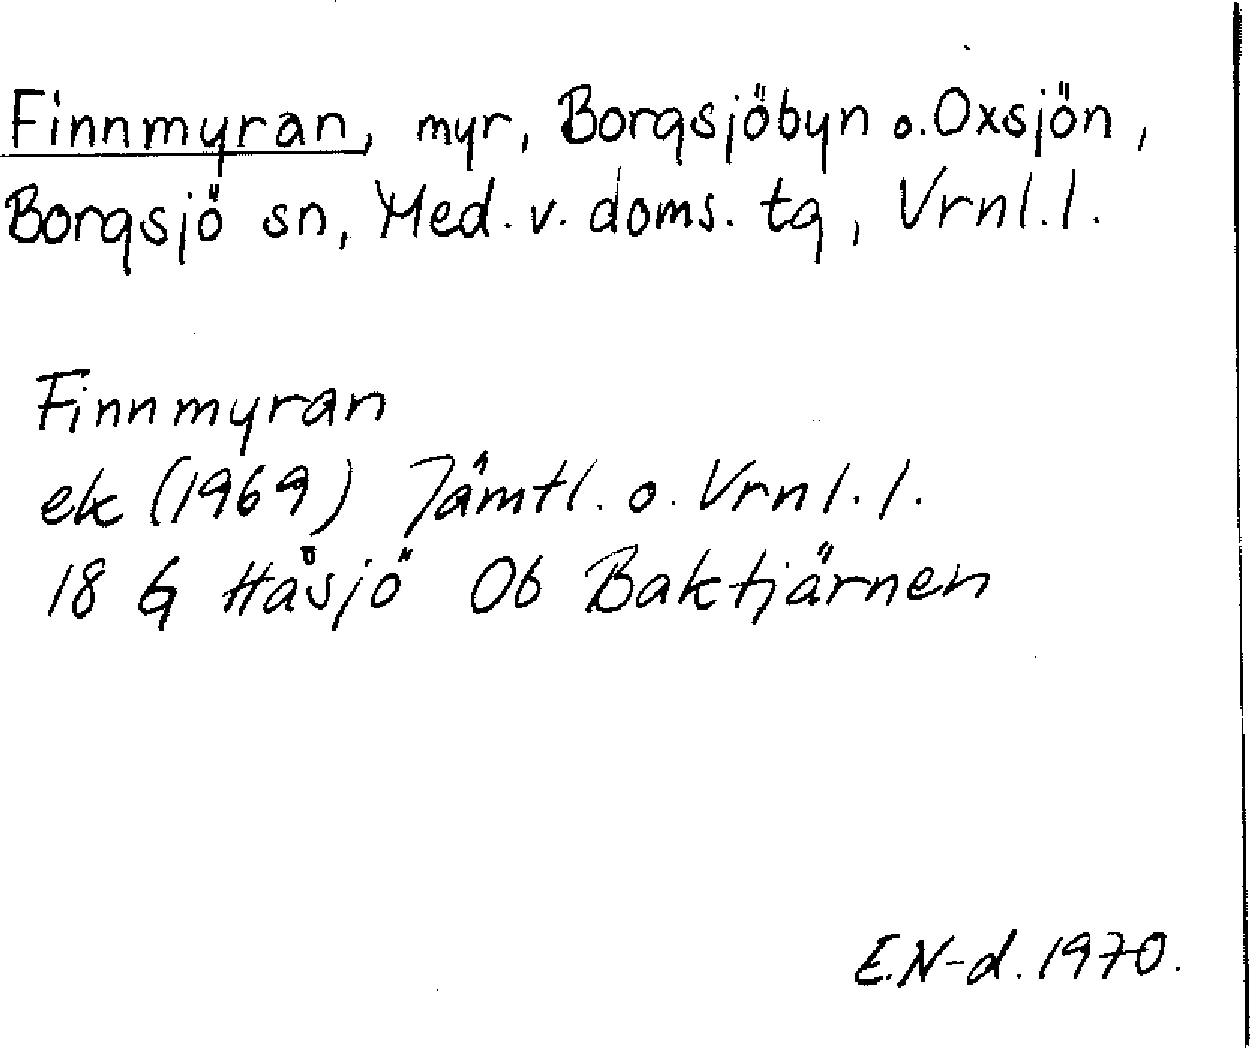 Finnmyran, myr, Borgsjöbyn o. Oxsjön,
Borgsjö sn, Med. v. doms. tg, Vrnl. l.
Finnmyran
ek (1969) Jämtl. o. Vrnl. l.
18 G Håsjö 0b Baktjärnen
E.N-d. 1970.